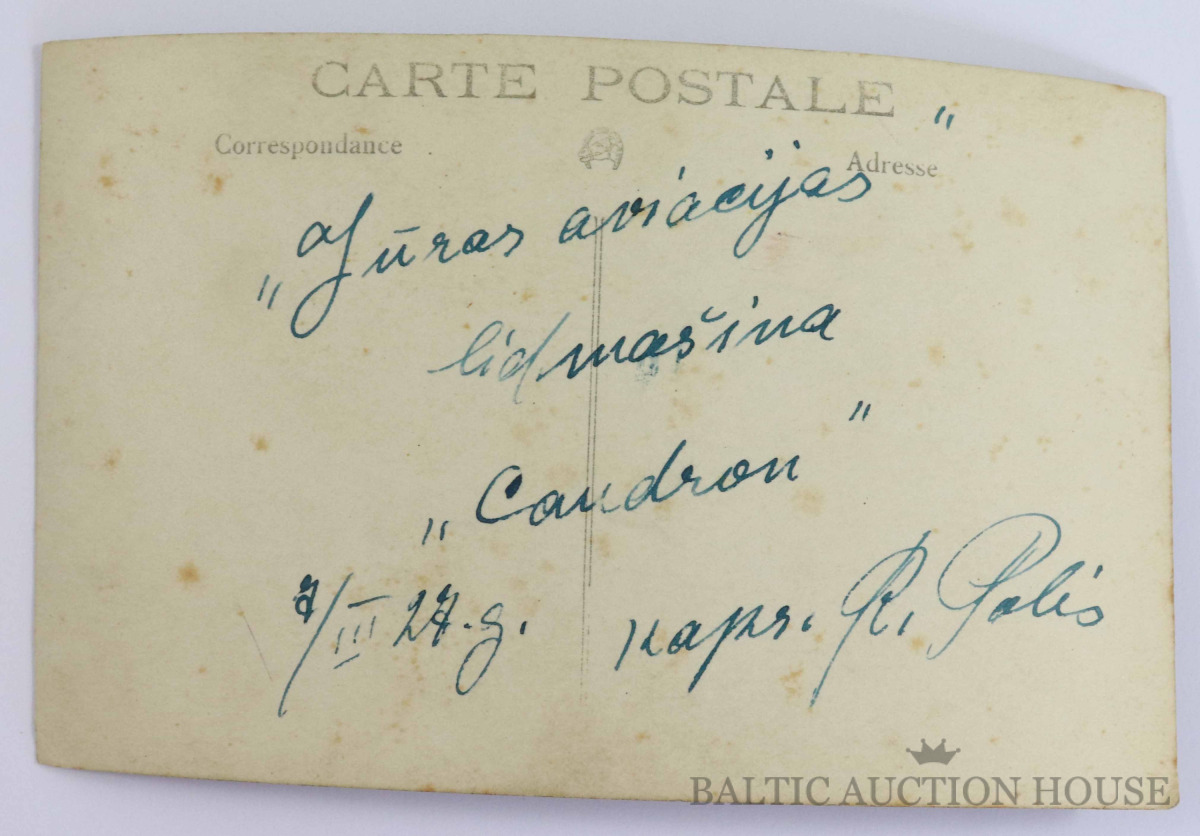 CARTE POSTALE
Correspondance
Adresse
„Jūras aviācijas"
lidmašina
„Caudron"
7/III 27.g.
kapr. R. Polis
BALTIC AUCTION HOUSE